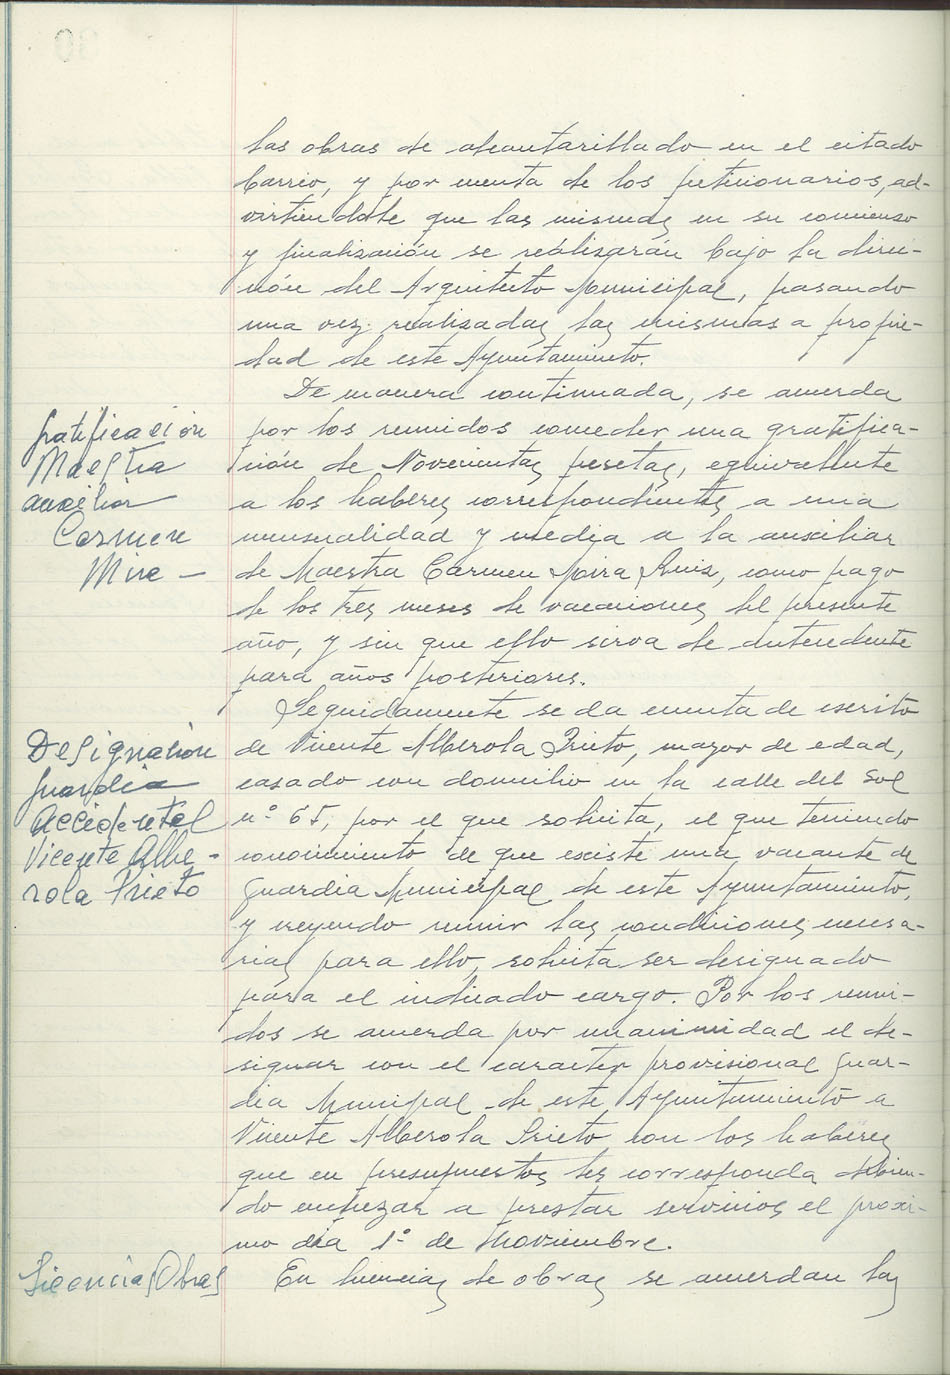 las obras de alcantarillado en el citado
barrio, y por cuenta de los peticionarios, ad-
virtiendole que las mismas en su comienzo
y finalización se realizarán bajo la direc-
ción del Arquitecto Municipal, pasando
una vez realizadas las mismas a propie-
dad de este Ayuntamiento.
De manera continuada, se acuerda
Gratificación
Maestra
auxiliar
Carmen
Mira —
por los reunidos conceder una gratifica-
ción de Novecientas pesetas, equivalente
a los haberes correspondientes a una
mensualidad y media a la auxiliar
de Maestra Carmen Mira Ruiz, como pago
de los tres meses de vacaciones del presente
año, y sin que ello sirva de antecedente
para años posteriores.
Seguidamente se da cuenta de escrito
Designacion
guardia
Accidental
Vicente Albe-
rola Prieto
de Vicente Alberola Prieto, mayor de edad,
casado con domicilio en la calle del Sol
nº 65, por el que solicita, el que teniendo
conocimiento de que existe una vacante de
Guardia Municipal de este Ayuntamiento,
y creyendo reunir las condiciones necesa-
rias para ello, solicita ser designado
para el indicado cargo. Por los reuni-
dos se acuerda por unanimidad el de-
signar con el caracter provisional Guar-
dia Muncipal de este Ayuntamiento a
Vicente Alberola Prieto con los haberes
que en presupuestos les corresponda debien-
do empezar a prestar servicios el proxi-
mo día 1º de Noviembre.
Licencias Obras
En licencias de obras se acuerdan las